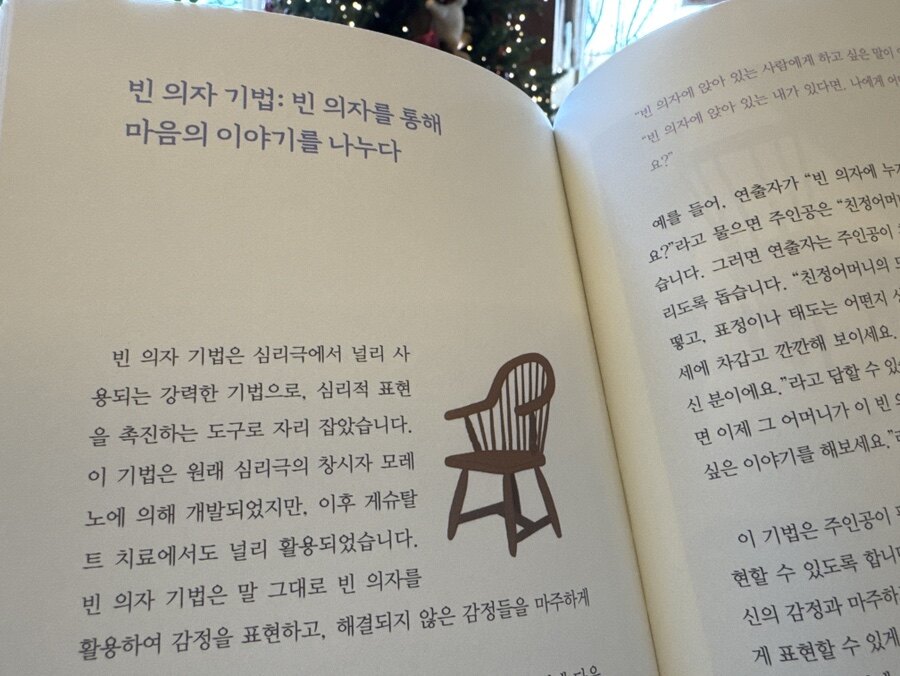 빈 의자 기법: 빈 의자를 통해
마음의 이야기를 나누다
빈 의자 기법은 심리극에서 널리 사
용되는 강력한 기법으로, 심리적 표현
을 촉진하는 도구로 자리 잡았습니다.
이 기법은 원래 심리극의 창시자 모레
노에 의해 개발되었지만, 이후 게슈탈
트 치료에서도 널리 활용되었습니다.
빈 의자 기법은 말 그대로 빈 의자를
활용하여 감정을 표현하고, 해결되지 않은 감정들을 마주하게
“빈 의자에 앉아 있는 사람에게 하고 싶은 말이
“빈 의자에 앉아 있는 내가 있다면, 나에게
요?”
예를 들어, 연출자가 “빈 의자에
요?”라고 물으면 주인공은 “친정어머
습니다. 그러면 연출자는 주인공이
리도록 돕습니다. “친정어머니의
떻고, 표정이나 태도는 어떤지
세에 차갑고 깐깐해 보이세요.
신 분이에요.”라고 답할 수 있
면 이제 그 어머니가 이 빈
싶은 이야기를 해보세요.”
이 기법은 주인공이
현할 수 있도록 합니
신의 감정과 마주하
게 표현할 수 있게